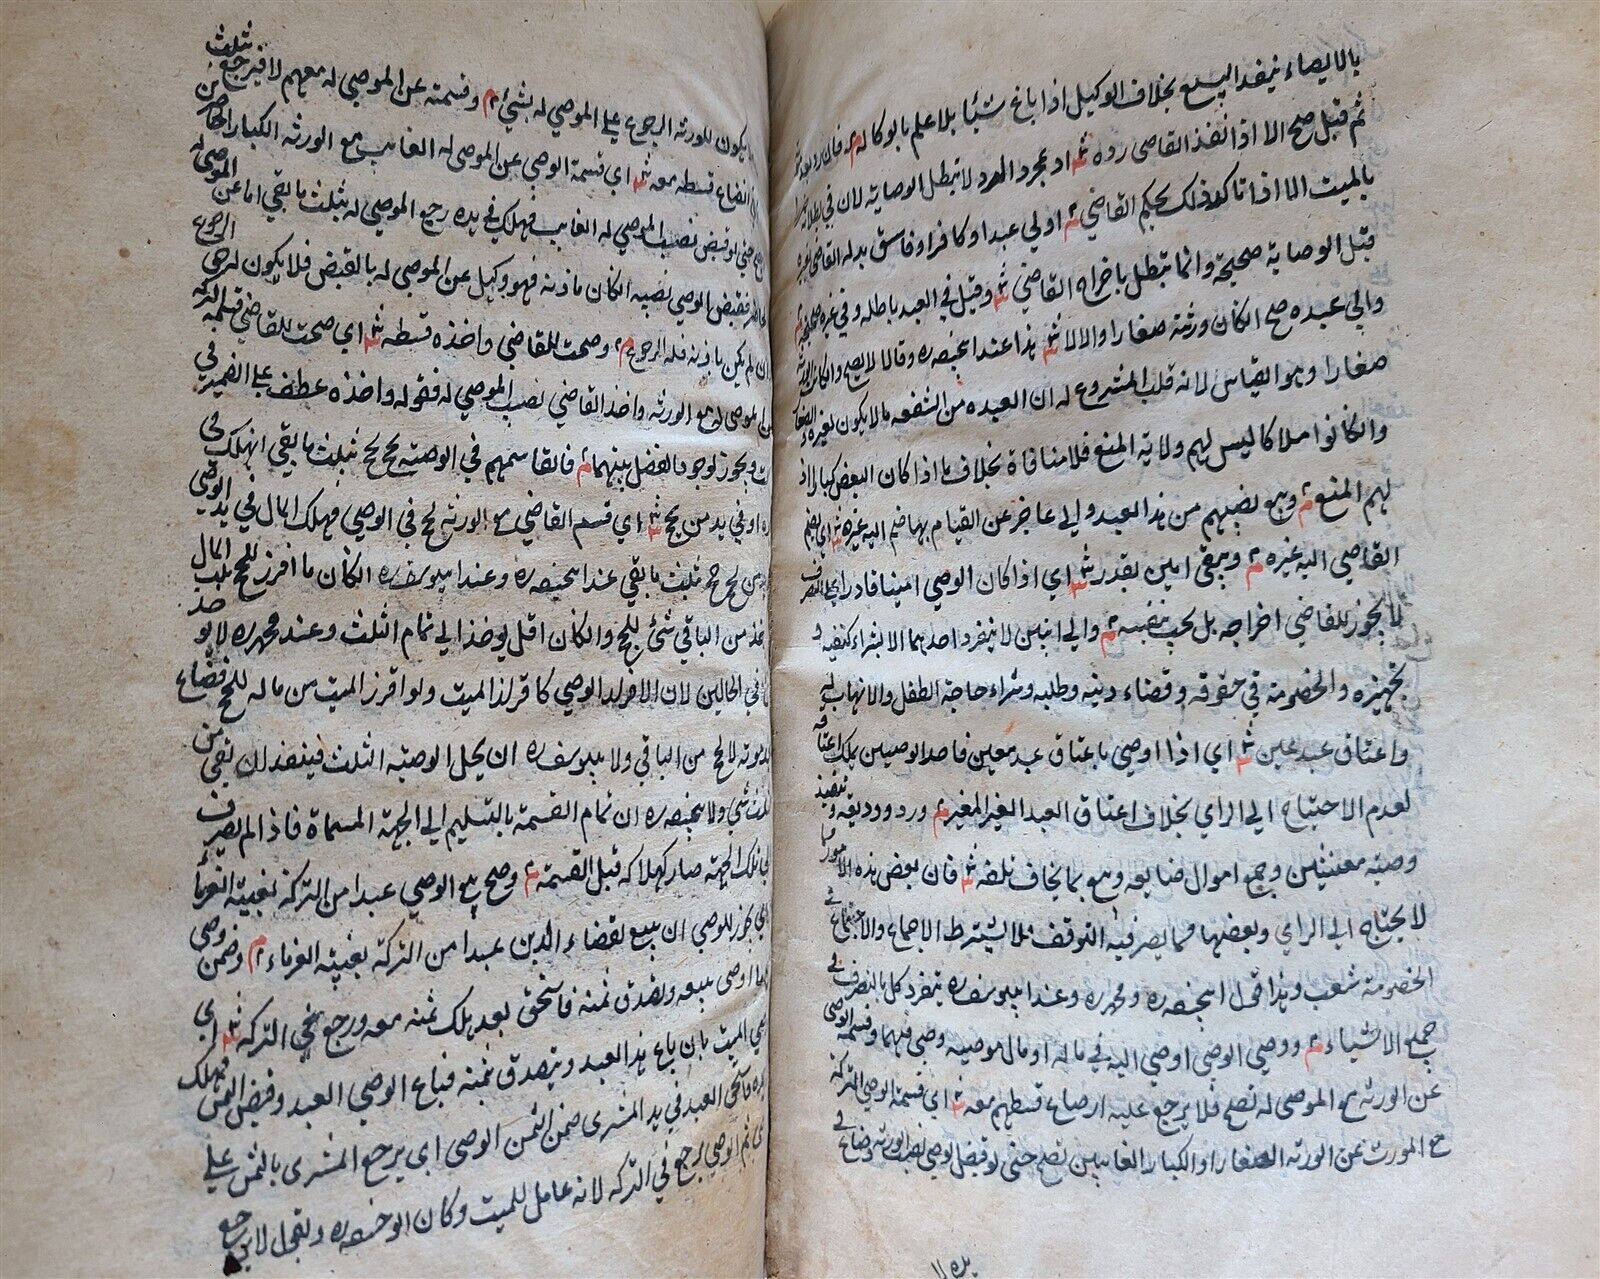 بالايصاء ينفذ البيع بخلاف الوكيل اذا باع شيئا بلا علم بالوكالة م فان رد بعد
ثم قبل صح الا اذا نفذ القاضي رده ش اي بمجرد الرد لا تبطل الوصاية لان في ابطاله
بالميت اما اذا تاكد ذلك بحكم القاضي م او لي عبد او كافر او فاسق بدله القاضي بغيره
قبل الوصاية صحيحة وانما تبطل باخراج القاضي ش وقيل في العبد باطله وفي غيره صحيحة
والي عبده صح ان كان ورثته صغارا والا لا ش هذا عند ابيحنيفه ره وقالا لا يصح وان كان الورثه
صغارا وهو القياس لانه قلب المشروع له ان العبد له من الشفقه ما لا يكون لغيره
وان كانوا ملاكا ليس لهم ولاية المنع فلا منافاة بخلاف ما اذا كان البعض كبارا اذ
لهم المنع م وبيع نصيبهم من هذا العبد والي عاجز عن القيام بها ضم اليه غيره ش اي يضم
القاضي اليه غيره م ويبقي امين يقدر ش اي اذا كان الوصي امينا قادرا علي التصرف
لا يجوز للقاضي اخراجه بل يجب تبقيته م والي اثنين لا ينفرد احدهما الا بشراء كفنه و
تجهيزه والخصومة في حقوقه وقضاء دينه وطلبه وشراء حاجة الطفل والاتهاب له
واعتاق عبد عين ش اي اذا اوصي باعتاق عبد معين فاحد الوصيين يملك اعتاقه
لعدم الاحتياج الي الراي بخلاف اعتاق العبد الغير المعين م ورد وديعة وتنفيذ
وصية معينتين وجمع اموال ضايعه وبيع ما يخاف تلفه ش فان بعض هذه الامور
لا يحتاج الي الراي وبعضها مما يضر فيه التوقف فلا يشترط الاجماع والاجتماع في
الخصومة شغب وهذا قول ابيحنيفه ره ومحمد ره وعند ابييوسف ره ينفرد كل بالتصرف في
جميع الاشياء م ووصي الوصي اوصي اليه في ماله او مال موصيه وصي فيهما وقسمة الوصي
عن الورثه مع الموصي له تصح فلا يرجع عليه ان ضاع قسطهم معه ش اي قسمة الوصي التركة
مع الموصي له عن الورثه الصغار او الكبار الغايبين تصح حتي لو قبض الوصي نصيب الورثه وضاع في
يده لا
يكون للورثه الرجوع علي الموصي له بشيئ م وقسمته عن الموصي له معهم لا فيرجع بثلث
ان ضاع قسطه معه ش اي قسمة الوصي عن الموصي له الغايب مع الورثه الكبار الحاضرين
حتي لو قبض نصيب الموصي له الغايب فهلك في يده رجع الموصي له بثلث ما بقي اما عن الموصي له
فقبض الوصي نصيبه ان كان باذنه فهو وكيل عن الموصي له بالقبض فلا يكون له الرجوع
ان لم يكن باذنه فله الرجوع م وصحت للقاضي واخذه قسطه ش اي صحت للقاضي قسمة التركه
الموصي له مع الورثه واخذ القاضي نصيب الموصي له فقوله واخذه عطف علي الضمير في
صحت ويجوز لوجود الفصل بينهما م فان قاسمهم في الوصية بحج حج بثلث ما بقي ان هلك في
يده او في يد من يحج ش اي قسم القاضي مع الورثه لحج في الوصي فهلك المال في يد الوصي
من يحج حج بثلث ما بقي عند ابيحنيفه ره وعند ابييوسف ره ان كان ما افرز للحج ثلث المال
لا يوخذ من الباقي شئ للحج وان كان اقل يوخذ الي تمام الثلث وعند محمد ره لا يوخذ
في الحالين لان افراز الوصي كافراز الميت ولو افرز الميت من ماله للحج فضاع
بعد موته لا يحج من الباقي ولابييوسف ره ان محل الوصية الثلث فينفذ ان بقي من
الثلث شئ ولابيحنيفه ره ان تمام القسمة بالتسليم الي الجهة المسماة فاذا لم يصرف
الي تلك الجهة صار كهلاكه قبل القسمة م وصح بيع الوصي عبدا من التركة بغيبة الغرماء
اي يجوز للوصي ان يبيع لقضاء الدين عبدا من التركة بغيبة الغرماء م وضمن وصي
باع ما اوصي ببيعه وتصدق ثمنه فاستحق بعد هلك ثمنه معه ورجع في التركة ش اي
اوصي الميت بان يباع هذا العبد ويتصدق بثمنه فباع الوصي العبد وقبض الثمن فهلك
في يده فاستحق العبد في يد المشتري ضمن الثمن الوصي اي يرجع المشتري بالثمن علي
الوصي ثم الوصي يرجع في التركه لانه عامل للميت وكان ابو حنيفه ره يقول لا يرجع